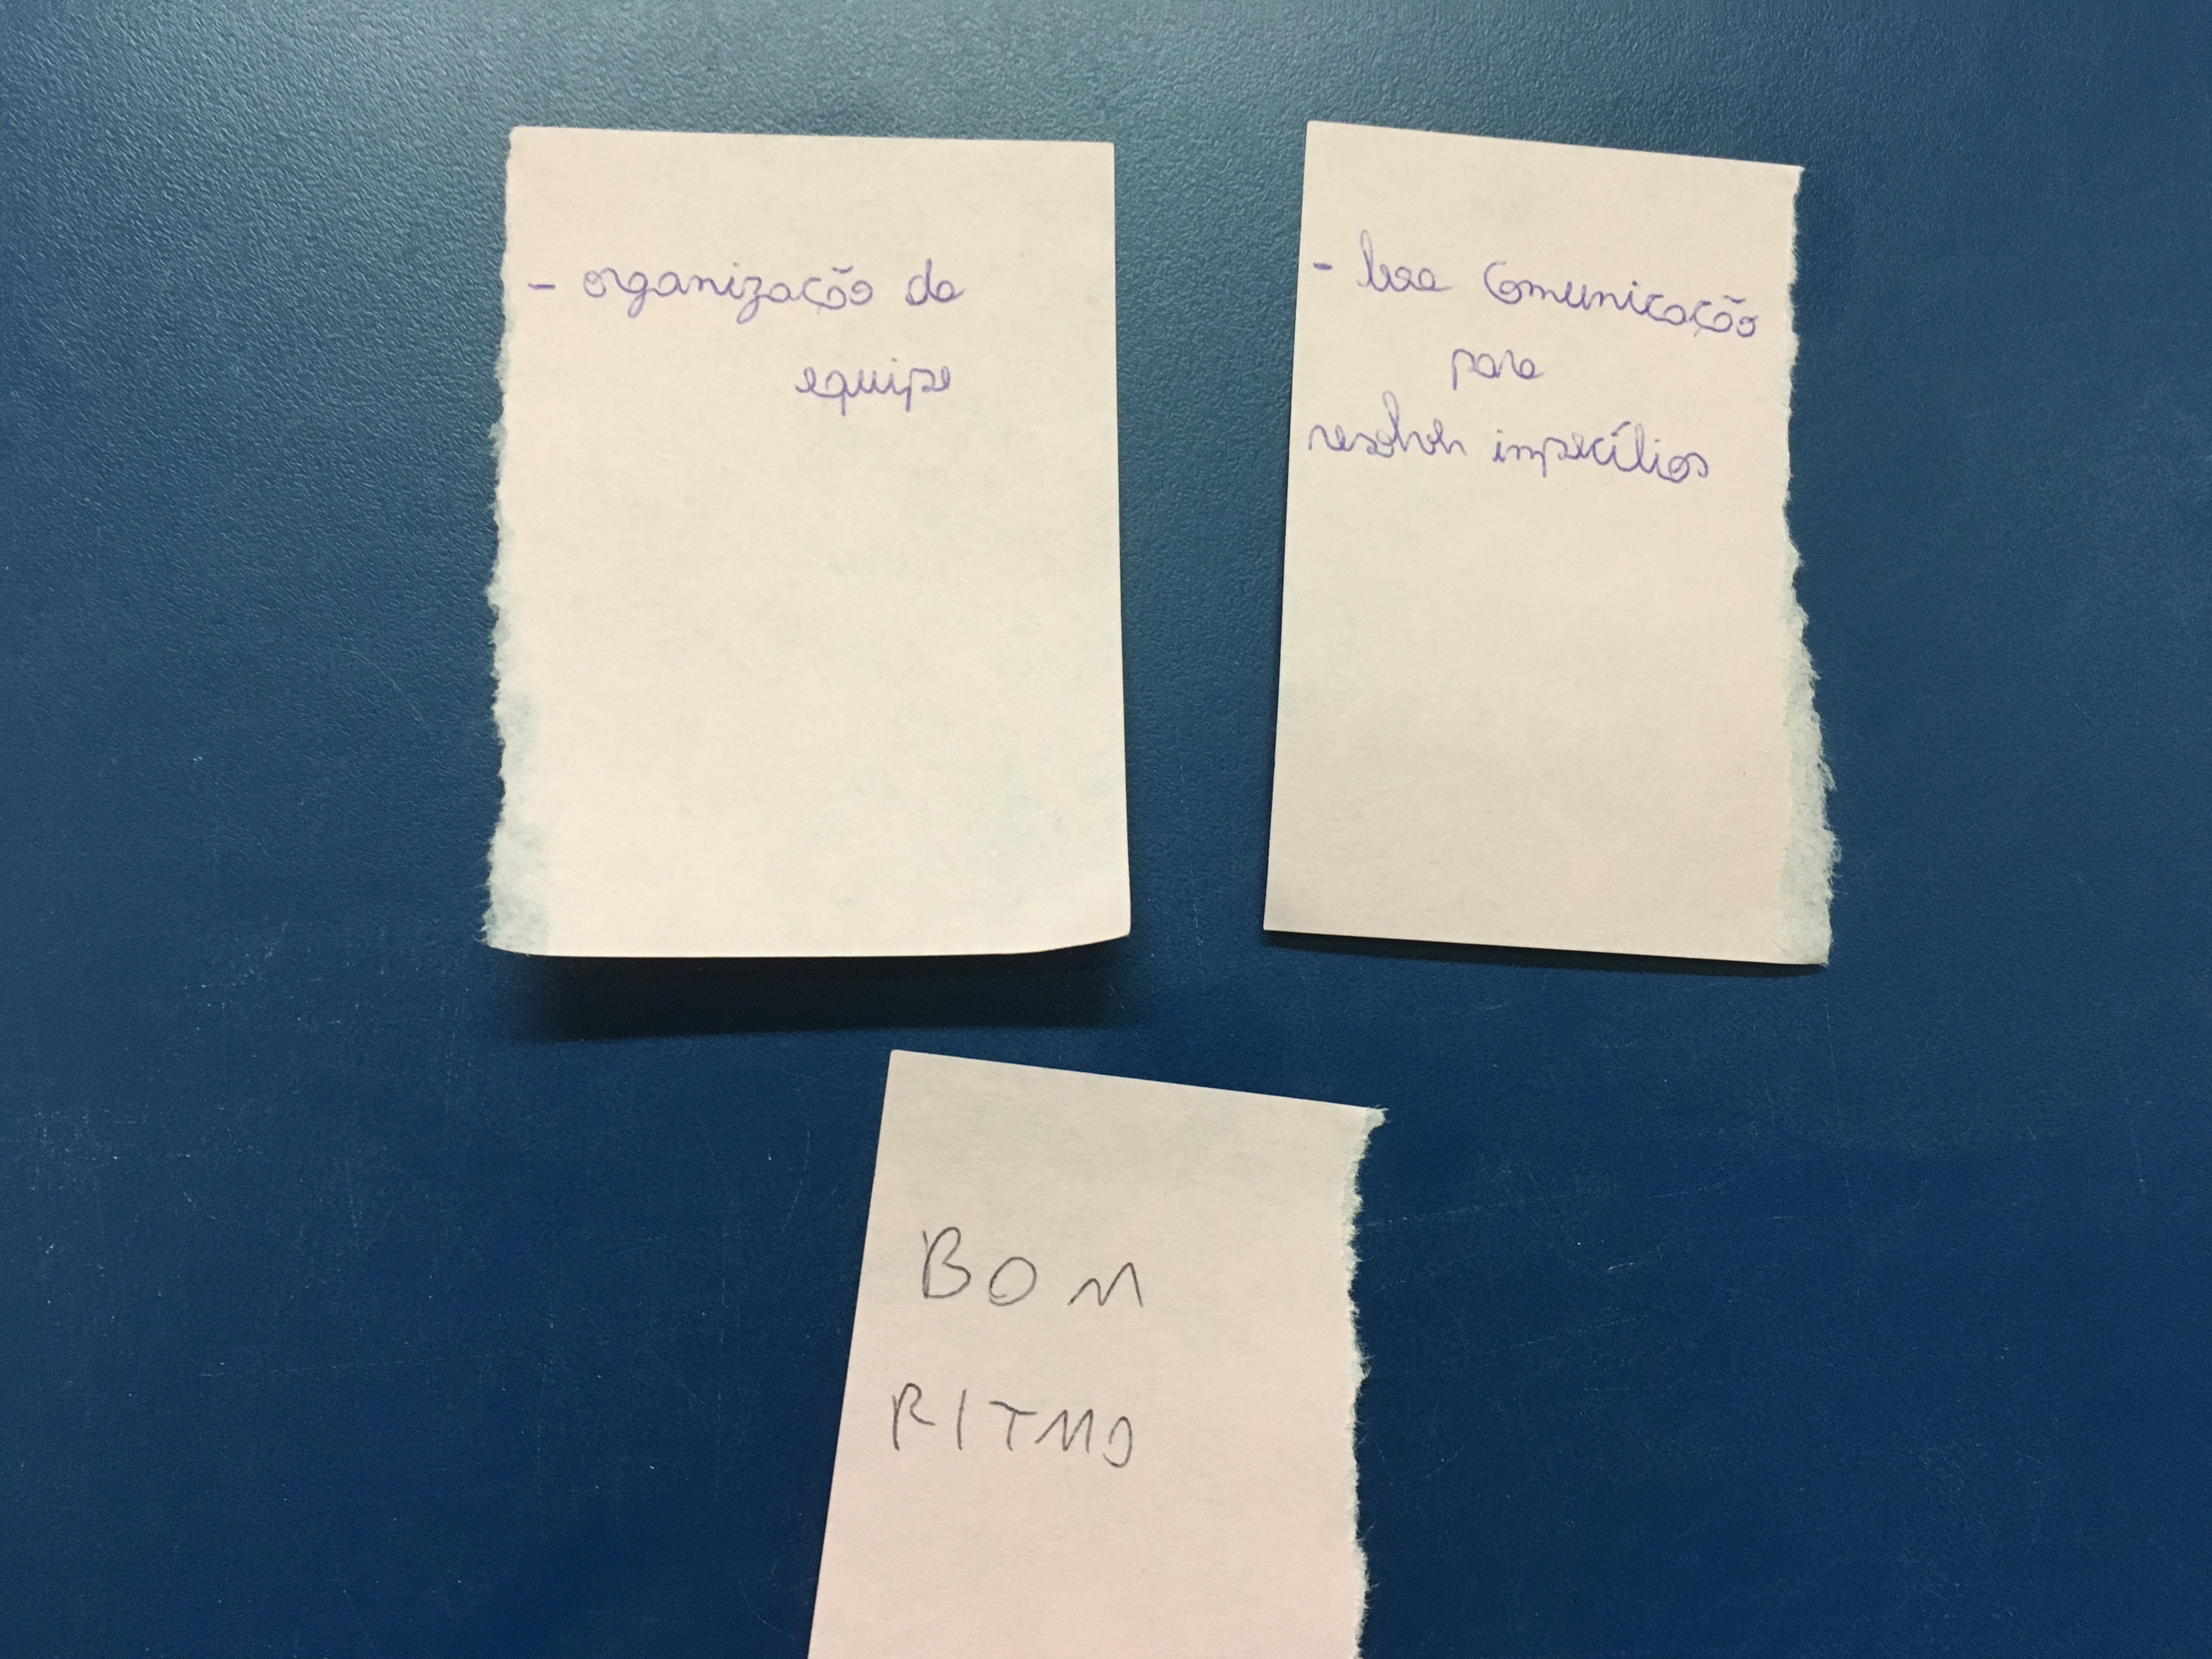 - organização da
equipe
- boa comunicação
para
resolver impecílios
BOM
RITMO